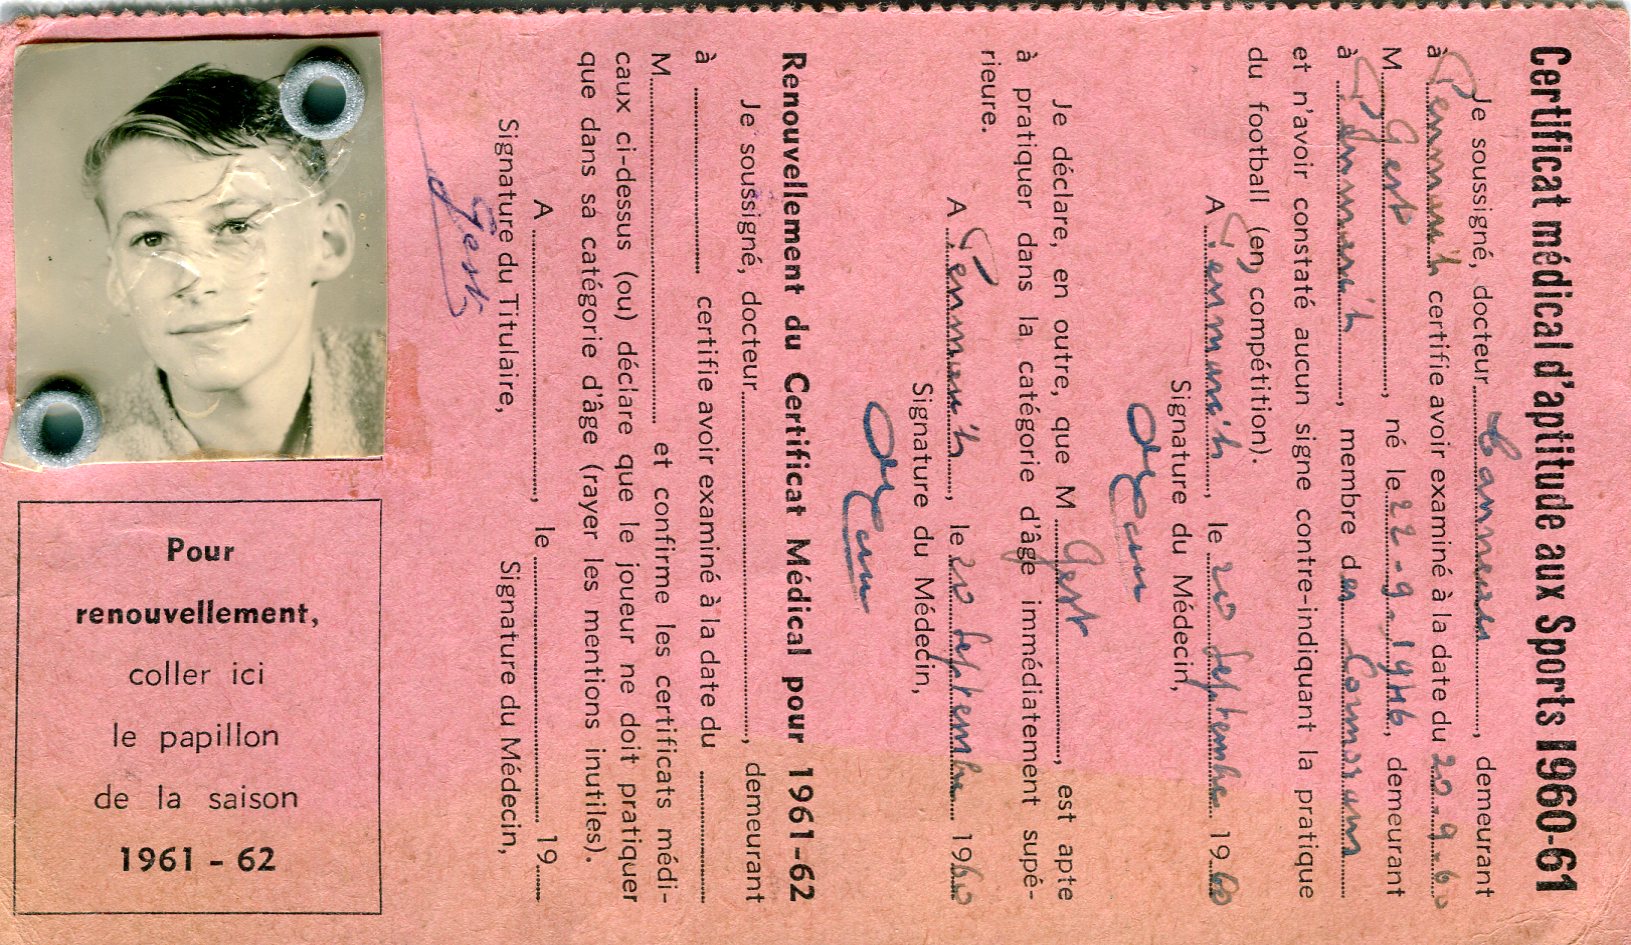 Certificat médical d'aptitude aux Sports 1960-61
Je soussigné, docteur, demeurant
à Penmarc'h certifie avoir examiné à la date du 20.9.60
M. Gest, né le 22-9-1946, demeurant
à Penmarc'h, membre des Cormorans
et n'avoir constaté aucun signe contre-indiquant la pratique
du football (en compétition).
A Penmarc'h, le 20 Septembre 1960
Signature du Médecin,
Je déclare, en outre, que M Gest, est apte
à pratiquer dans la catégorie d'âge immédiatement supé-
rieure.
A Penmarc'h, le 20 Septembre 1960
Signature du Médecin,
Renouvellement du Certificat Médical pour 1961-62
Je soussigné, docteur, demeurant
à certifie avoir examiné à la date du
M. et confirme les certificats médi-
caux ci-dessus (ou) déclare que le joueur ne doit pratiquer
que dans sa catégorie d'âge (rayer les mentions inutiles).
A, le 19
Signature du Titulaire, Signature du Médecin,
Gest
Pour
renouvellement,
coller ici
le papillon
de la saison
1961 - 62